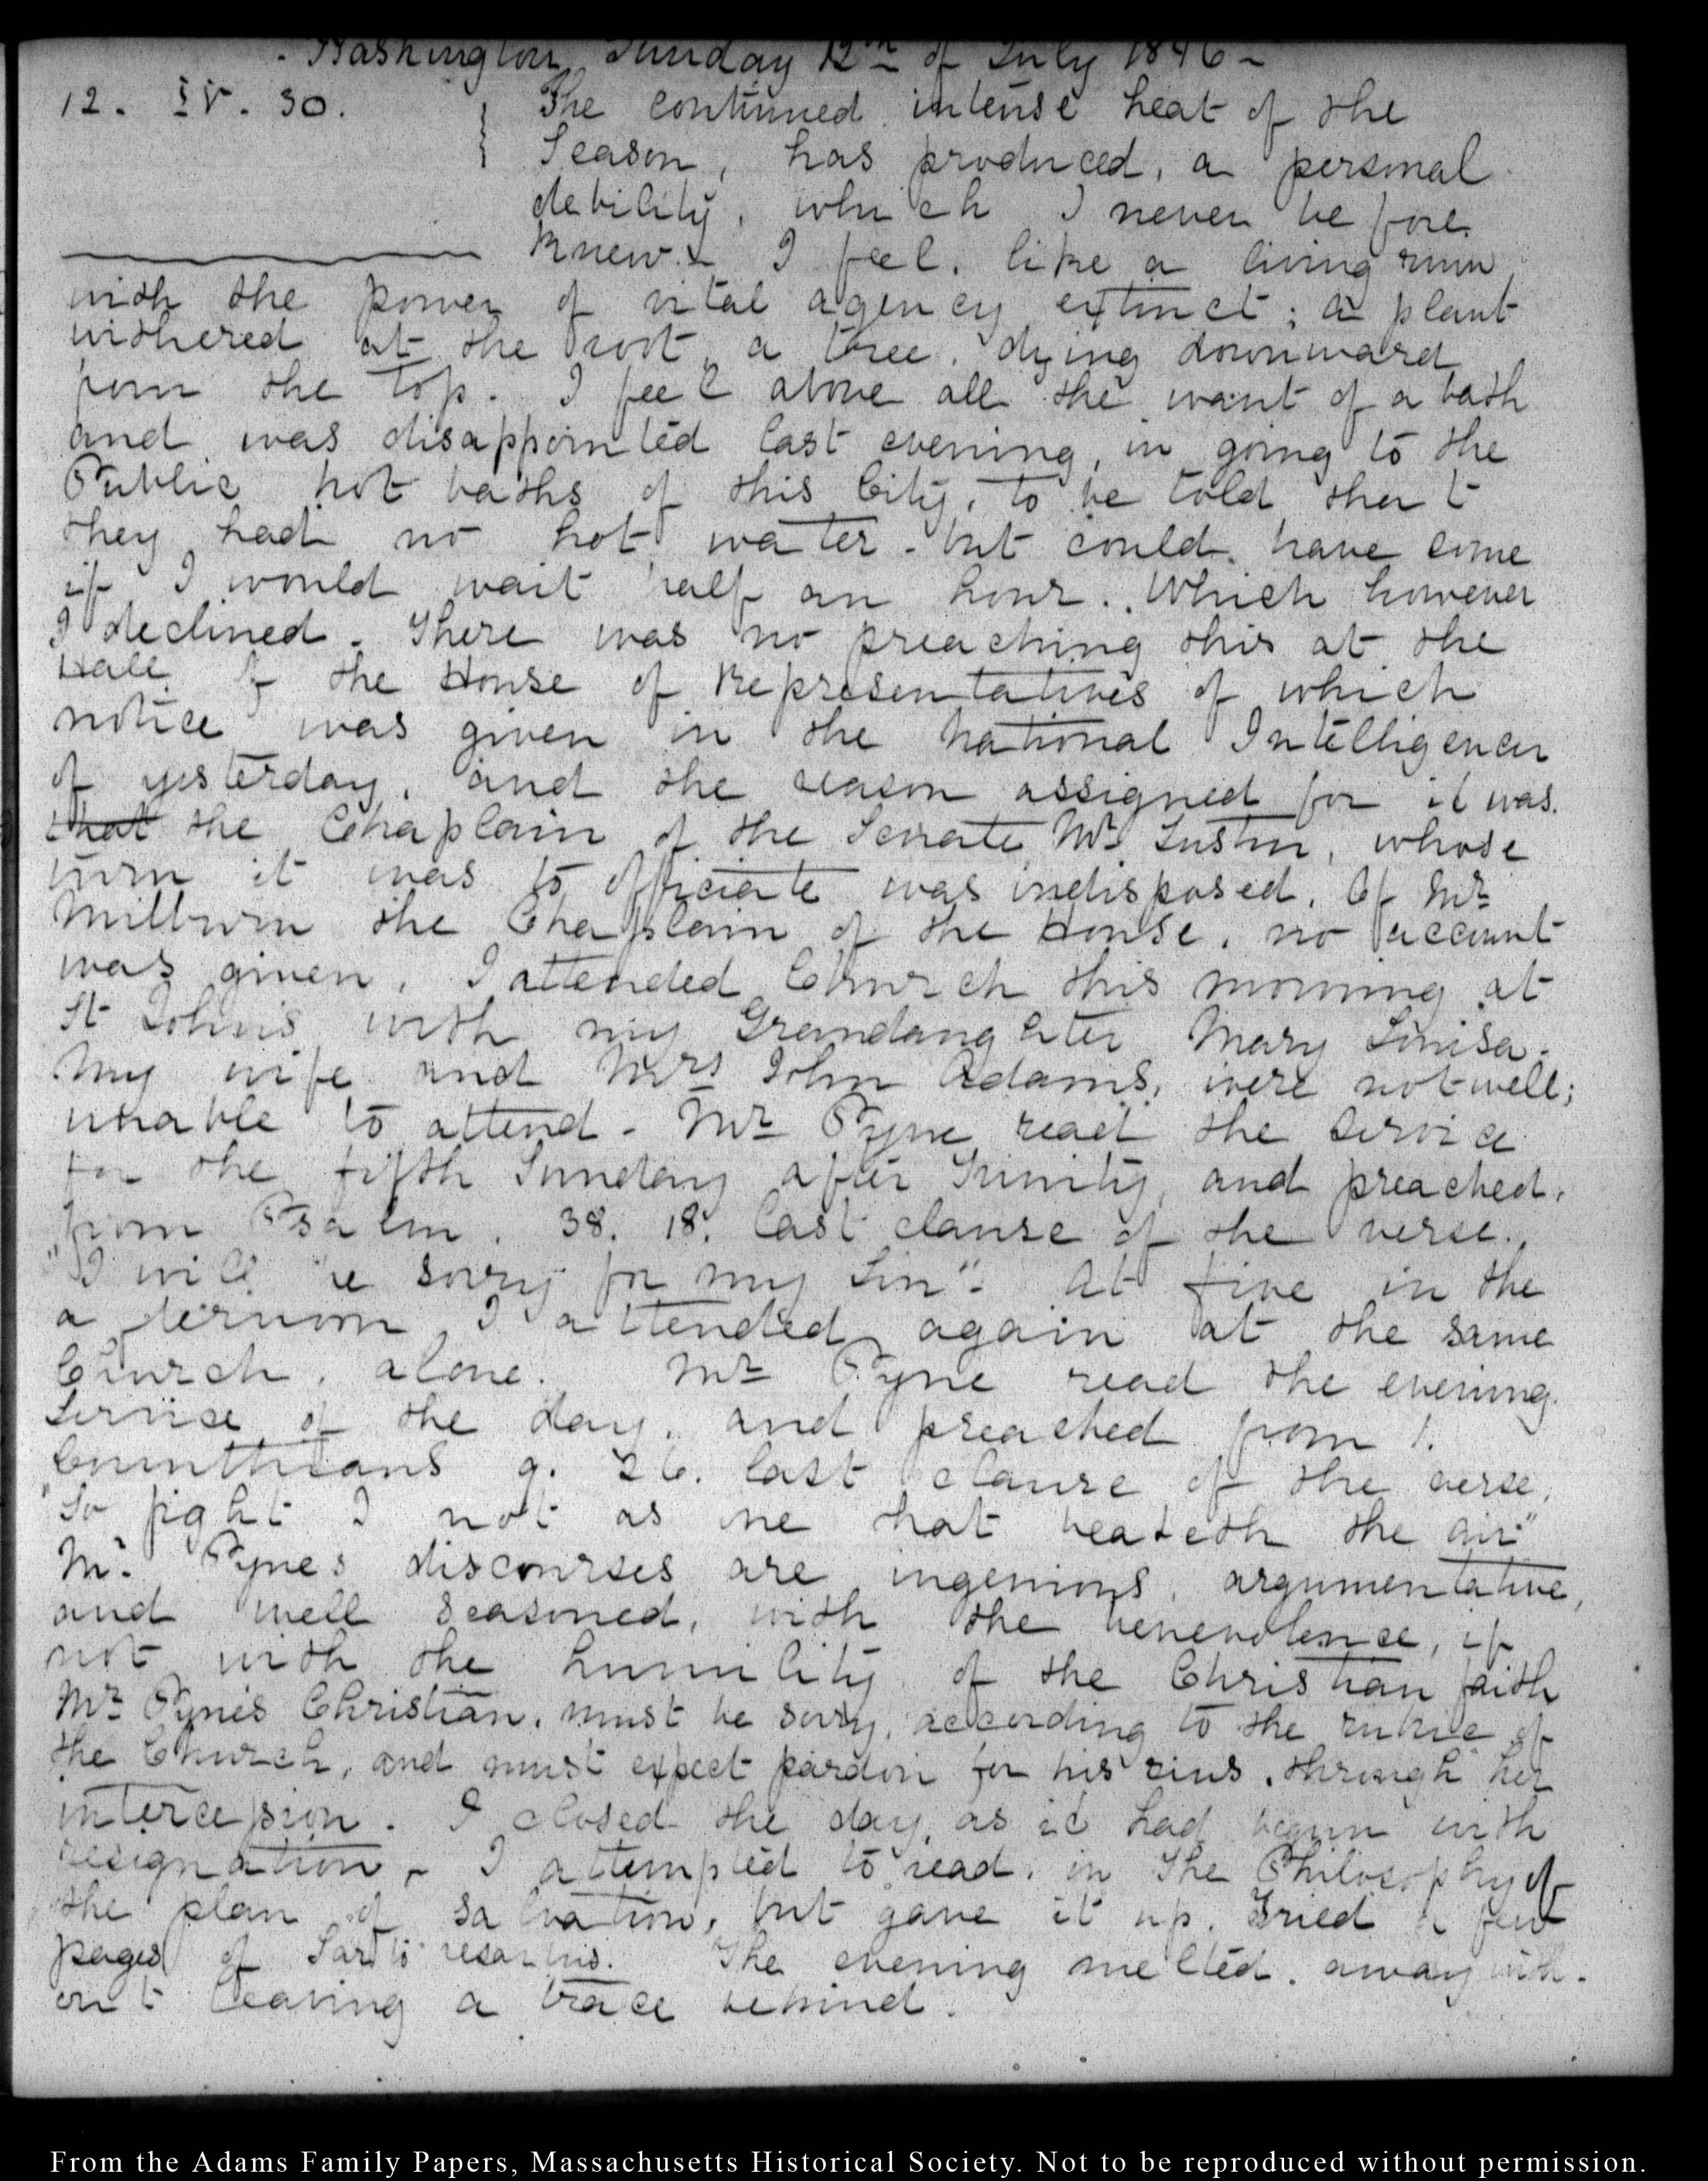 - Washington Sunday 12th of July 1846 -
12. IV. 30. The continued intense heat of the
Season, has produced, a personal
debility, which I never before
knew. I feel, like a living ruin
with the power of vital agency extinct; a plant
withered at the root, a tree, dying downward
from the top. I feel above all the want of a bath
and was disappointed last evening, in going to the
Public hot baths of this City, to be told that
they had no hot water - but could have some
if I would wait half an hour.. Which however
I declined. There was no preaching this at the
Hall of the House of Representatives of which
notice was given in the National Intelligencer
of yesterday, and the reason assigned for it was.
that the Chaplain of the Senate Mr Tustin, whose
turn it was to officiate was indisposed. Of Mr
Milburn the Chaplain of the House, no account
was given. I attended Church this morning at
St John's with my Grandaughter Mary Louisa.
My wife and Mrs John Adams, were not well;
unable to attend - Mr Pyne read the service
for the fifth Sunday after Trinity, and preached,
from Psalm. 38. 18. last clause of the verse.,
"I will be sorry for my sin". At five in the
afternoon, I attended again at the same
Church, alone. Mr Pyne read the evening
Service of the day, and preached from 1.
Corinthians 9. 26. last clause of the verse,
"So fight I not as one that beateth the air"
Mr. Pyne's discourses are ingenious, argumentative,
and well seasoned, with the benevolence, if
not with the humility of the Christian faith
Mr Pyne's Christian, must be sorry, according to the rubric of
the Church, and must expect pardon for his sins, through her
intercession. I closed the day, as it had begun with
resignation, - I attempted to read, in The Philosophy of
the plan of salvation, but gave it up. Tried a few
pages of Sartor resartus. The evening melted, away with-
out leaving a trace behind.
From the Adams Family Papers, Massachusetts Historical Society. Not to be reproduced without permission.